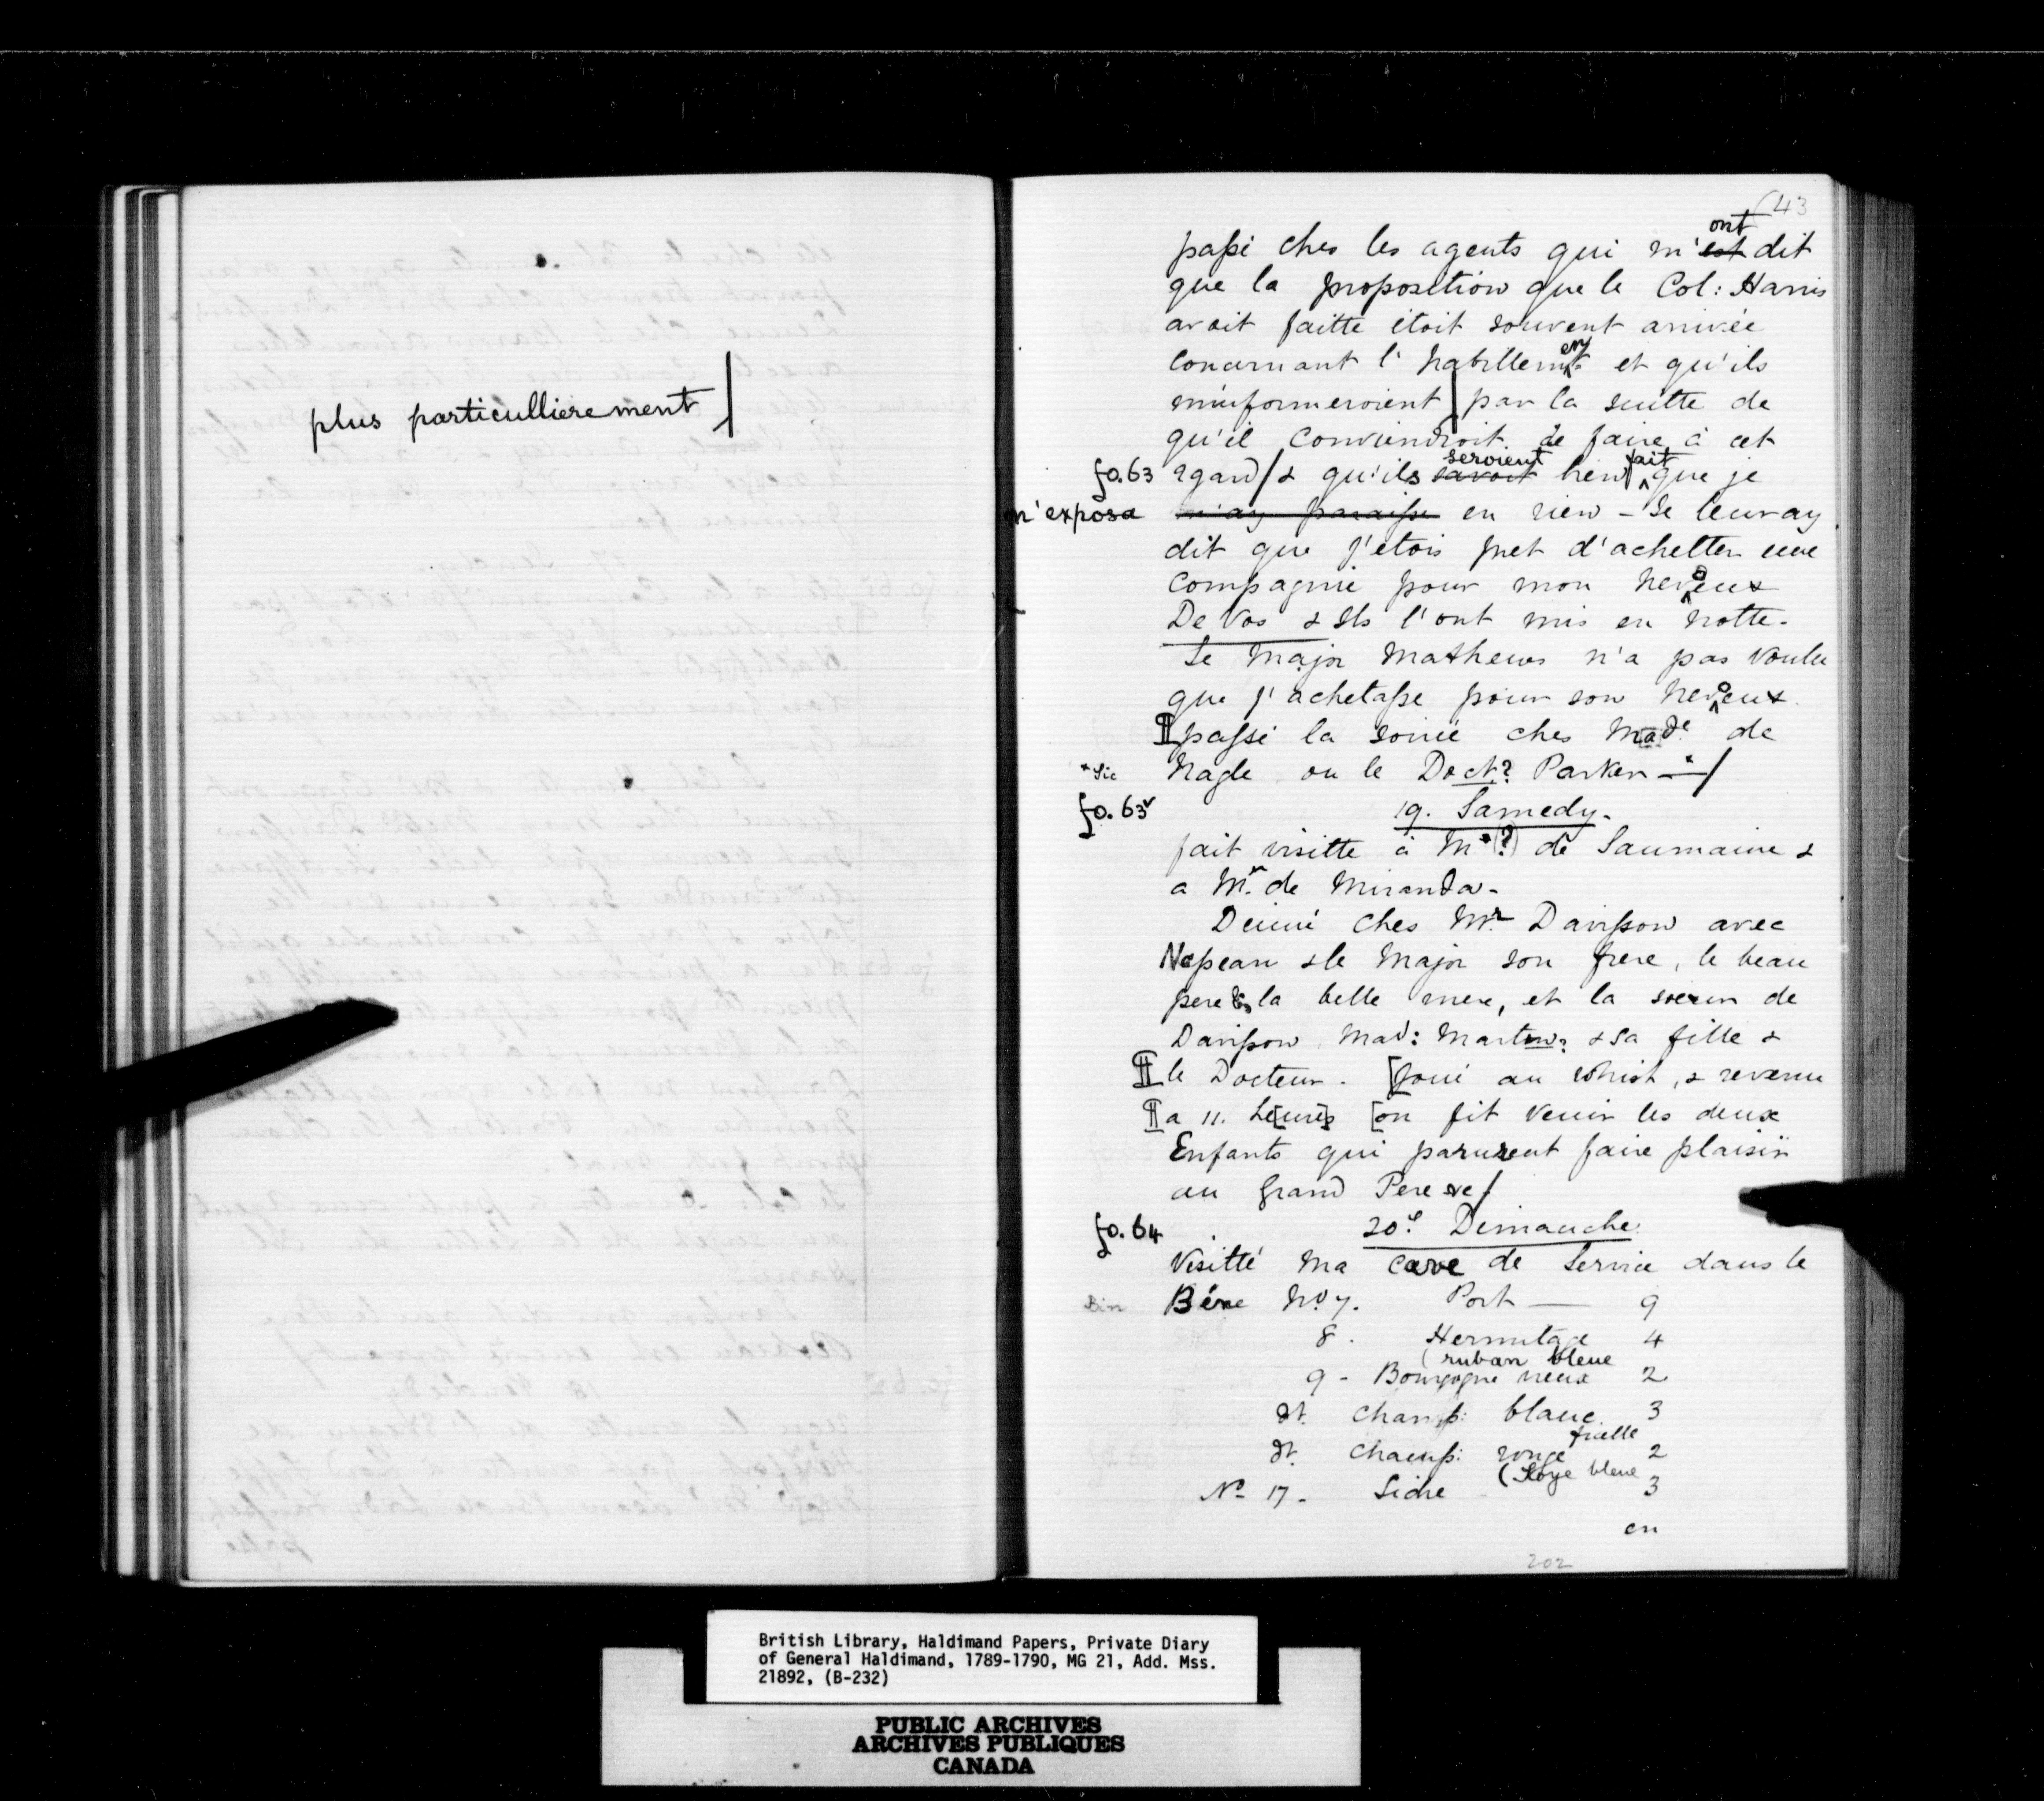 plus particullierement /
(43
passé ches les agents qui m'est ont dit
que la proposition que le Col: Harris
avoit faitte étoit souvent arrivée
concernant l'habillemt en et qu'ils
m'informeroient / par la suitte de
qu'il conviendroit de faire à cet
fo. 63 egard / & qu'ils savoit seroient bien fait que je
m'exposa en rien - Je leur ay
dit que j'etois pret d'achetter une
compagnie pour mon neveux
De Vos & Ils l'ont mis en notte -
Le Major Mathews n'a pas voulu
que j'achetasse pour son neveux
passé la soirée ches Made de
*Sic Nagle ou le Doct? Parker - * /
fo. 63v 19. Samedy -
fait visitte à Mr (?) de Saumaine &
a Mr. de Miranda -
Deiné ches Mr Davisson avec
Nepean & le Major son frere, le beau
pere & la belle mere, et la soeur de
Davisson Mad: Martin? & sa fille &
le Docteur. [joué au whist, & revenu
a 11. heures [on fit venir les deux
Enfants qui parurent faire plaisir
au grand Pere /
fo. 64 20e Dimanche
Visitté ma cave de Service dans le
Bin Béne No 7. Port — 9
8. Hermitage 4
(ruban bleue
9 - Bourgogne vieux 2
dt. Champ: blanc. 3
ficelle
dt. Champ: rouge 2
(Soye bleue
No 17 - Sidre 3
en
202
British Library, Haldimand Papers, Private Diary
of General Haldimand, 1789-1790, MG 21, Add. Mss.
21892, (B-232)
PUBLIC ARCHIVES
ARCHIVES PUBLIQUES
CANADA